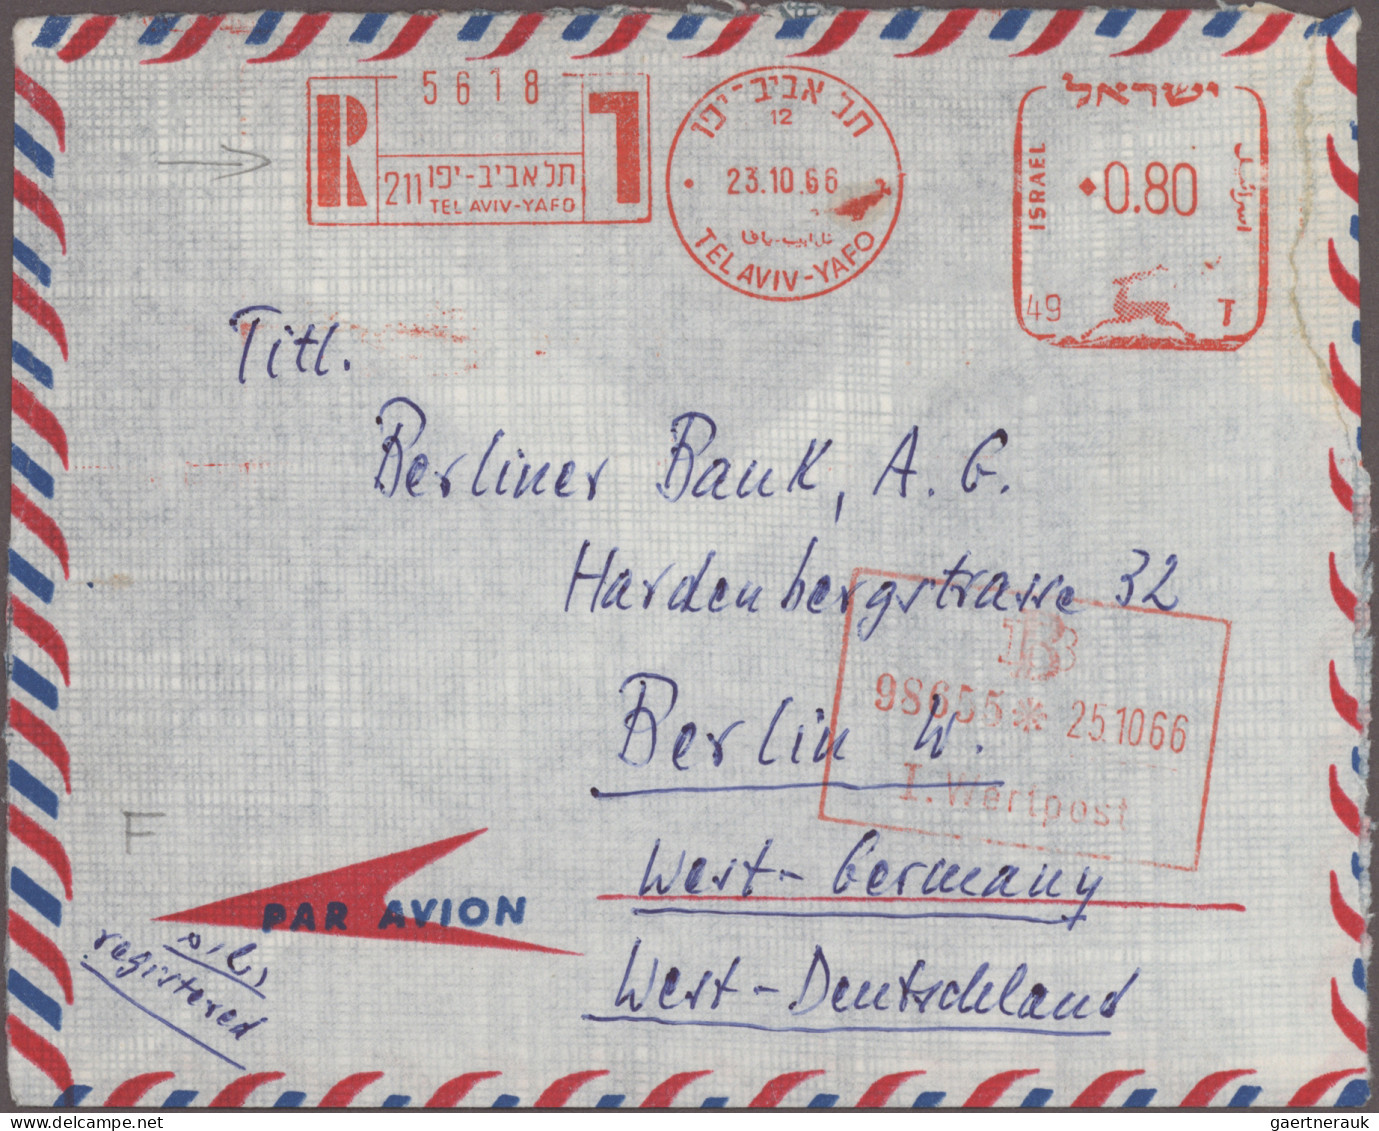 5618
R
ר
211 תל אביב-יפו
TEL AVIV-YAFO
תל אביב-יפו
12
23.10.66
تل ابيب-يافا
TEL AVIV-YAFO
ישראל
ISRAEL
0.80
اسرائيل
49
T
Titl.
Berliner Bank, A. G.
Hardenbergstrasse 32
Berlin W.
West-Germany
West-Deutschland
98655* 25.1066
I. Wertpost
F
PAR AVION
רשום
registered
gaertnerauk